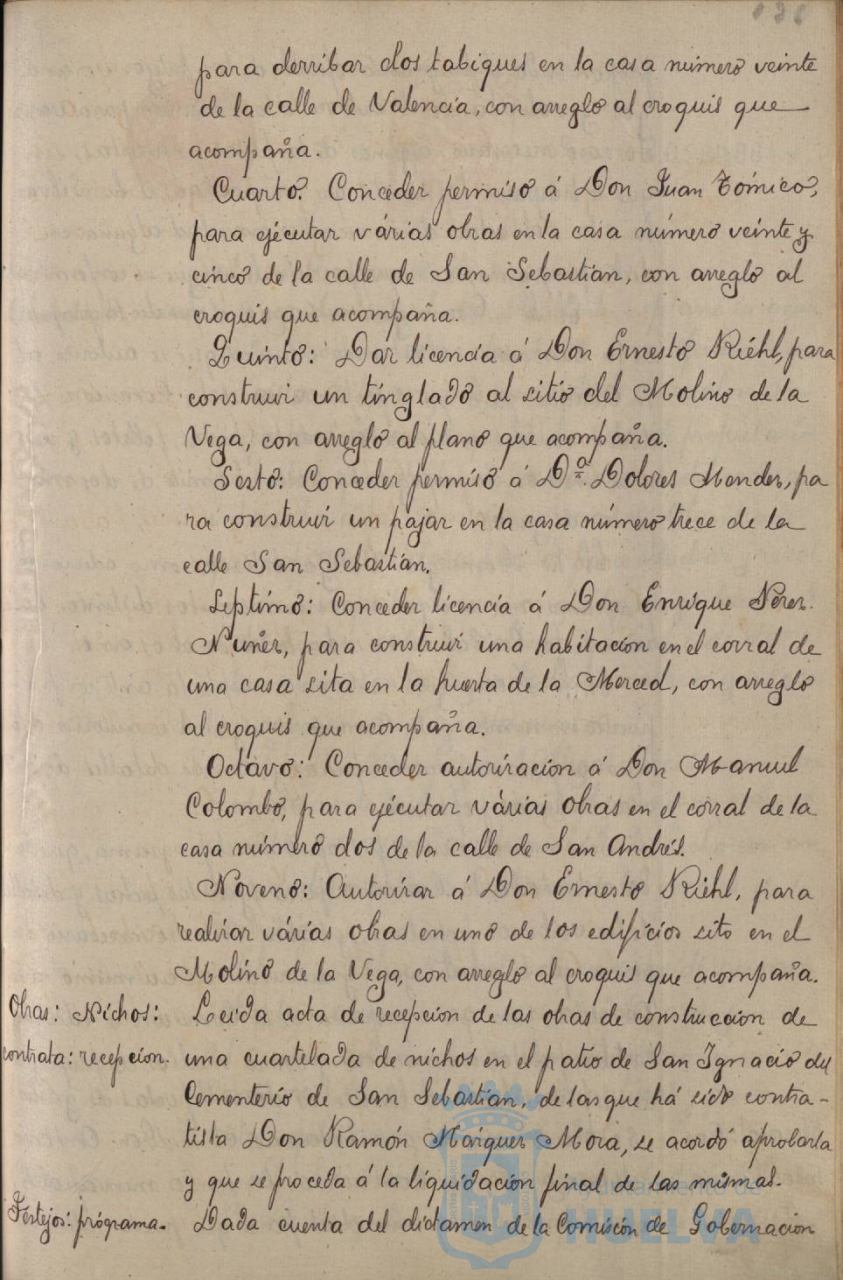 para derribar dos tabiques en la casa número veinte
de la calle de Valencia, con arreglo al croquis que
acompaña.
Cuarto. Conceder permiso á Don Juan Tómico,
para ejécutar várias obras en la casa número veinte y
cinco de la calle de San Sebastian, con arreglo al
croquis que acompaña.
Quinto: Dar licencia á Don Ernesto Riéhl, para
construir un tinglado al sitio del Molino de la
Vega, con arreglo al plano que acompaña.
Sesto: Conceder permiso á Dª. Dolores Mendez, pa
ra construir un pajar en la casa número trece de la
calle San Sebastian.
Septimo: Conceder licencia á Don Enrique Perez
Nuñez, para construir una habitacion en el corral de
una casa sita en la huerta de la Merced, con arreglo
al croquis que acompaña.
Octavo: Conceder autorizacion á Don Manuel
Colombo, para ejécutar várias obras en el corral de la
casa número dos de la calle de San Andrés.
Noveno: Autorizar á Don Ernesto Riéhl, para
realizar várias obras en uno de los edificios sito en el
Molino de la Vega, con arreglo al croquis que acompaña.
Obras: Nichos: Leida acta de recepcion de las obras de construccion de
contrata: recepcion. una cuartelada de nichos en el patio de San Ignacio del
Cementerio de San Sebastian, de las que há sido contra-
tista Don Ramón Maiquez Mora, se acordó aprobarla
y que se proceda á la liquidacion final de las mismas.
Festejos: prógrama. Dada cuenta del dictamen de la Comisión de Gobernacion
HUELVA